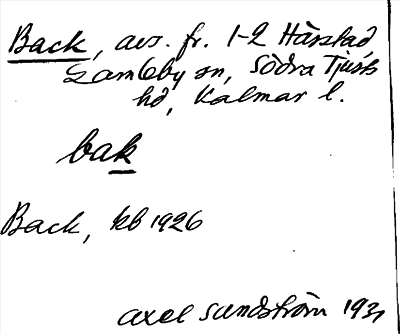 Back, avs. fr. 1-2 Hårstad
Gamleby sn, Södra Tjusts
hd, Kalmar l.
bak
Back, kb 1926
axel sandström 193